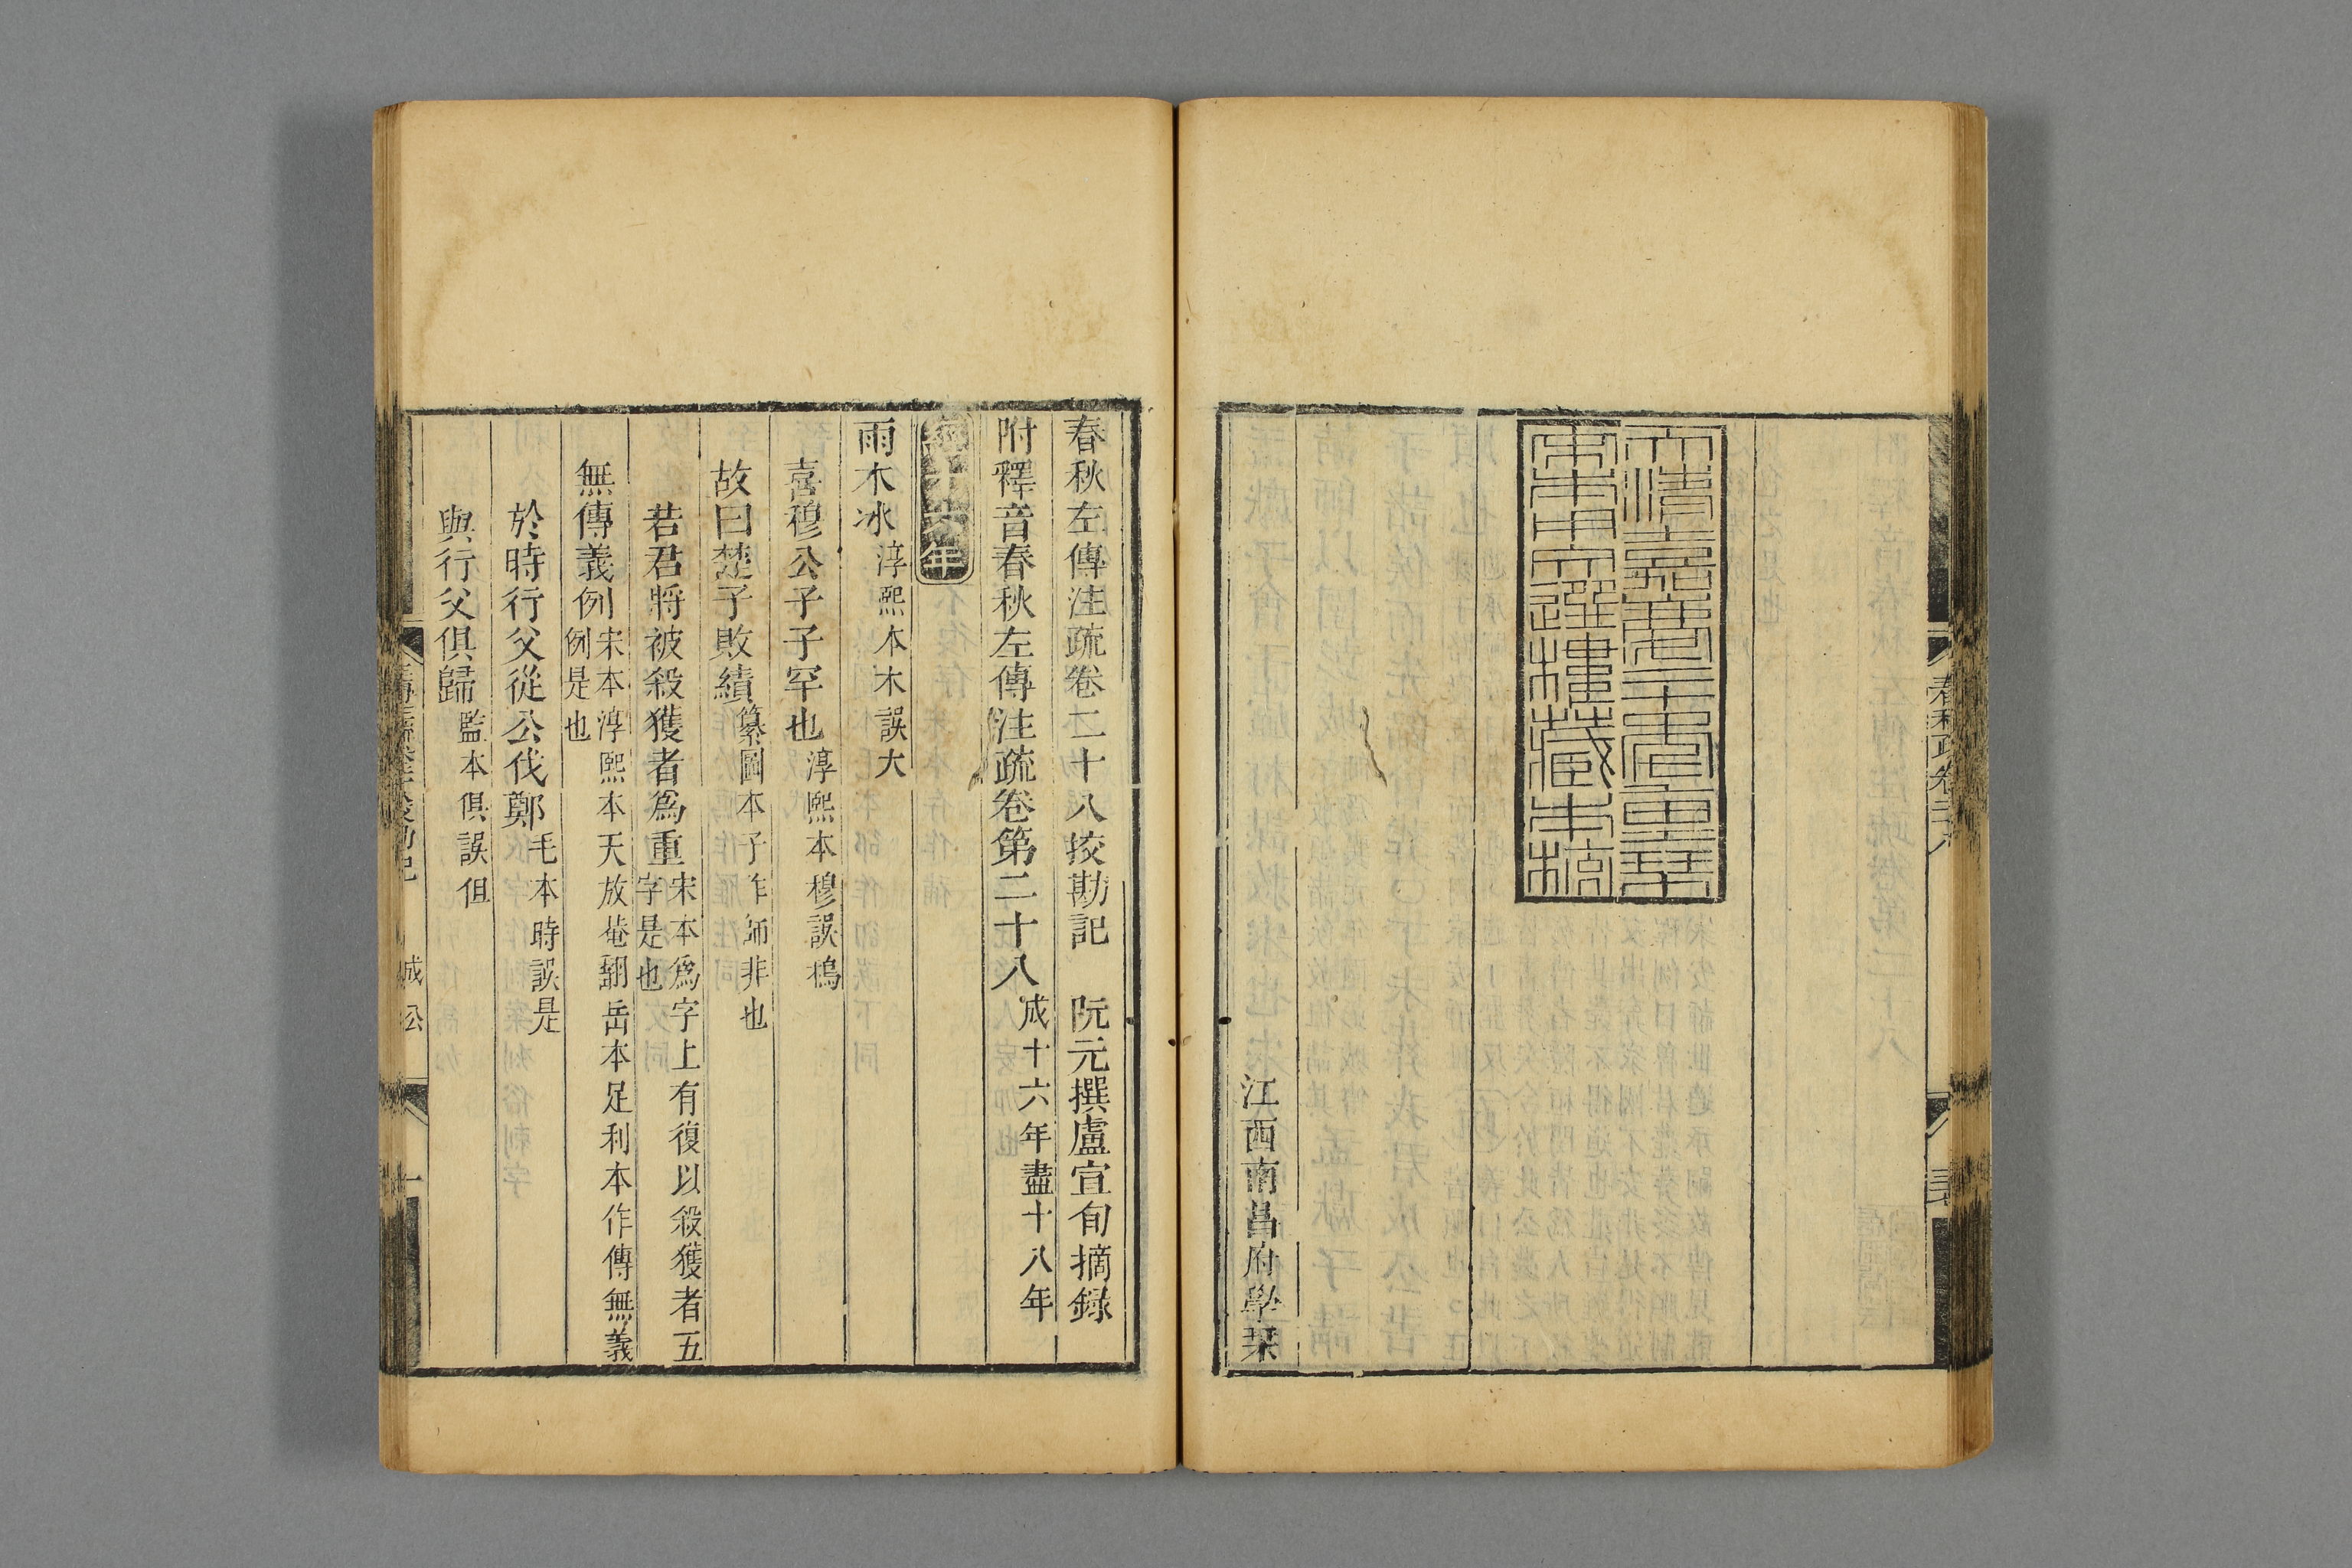 春秋疏卷二十八
大清嘉慶二十年重栞
宋本用文選樓藏本校
江西南昌府學栞
春秋左傳注疏卷二十八挍勘記　阮元撰盧宣旬摘錄
附釋音春秋左傳注疏卷第二十八 成十六年盡十八年
經十六年
雨木冰 淳熙本木誤大
喜穆公子子罕也 淳熙本穆誤樢
故曰楚子敗績 纂圖本子作師非也
若君將被殺獲者爲重 宋本爲字上有復以殺獲者五字是也
無傳義例 宋本淳熙本天放菴翻岳本足利本作傳無義例是也
於時行父從公伐鄭 毛本時誤是
與行父俱歸 監本俱誤但
成公